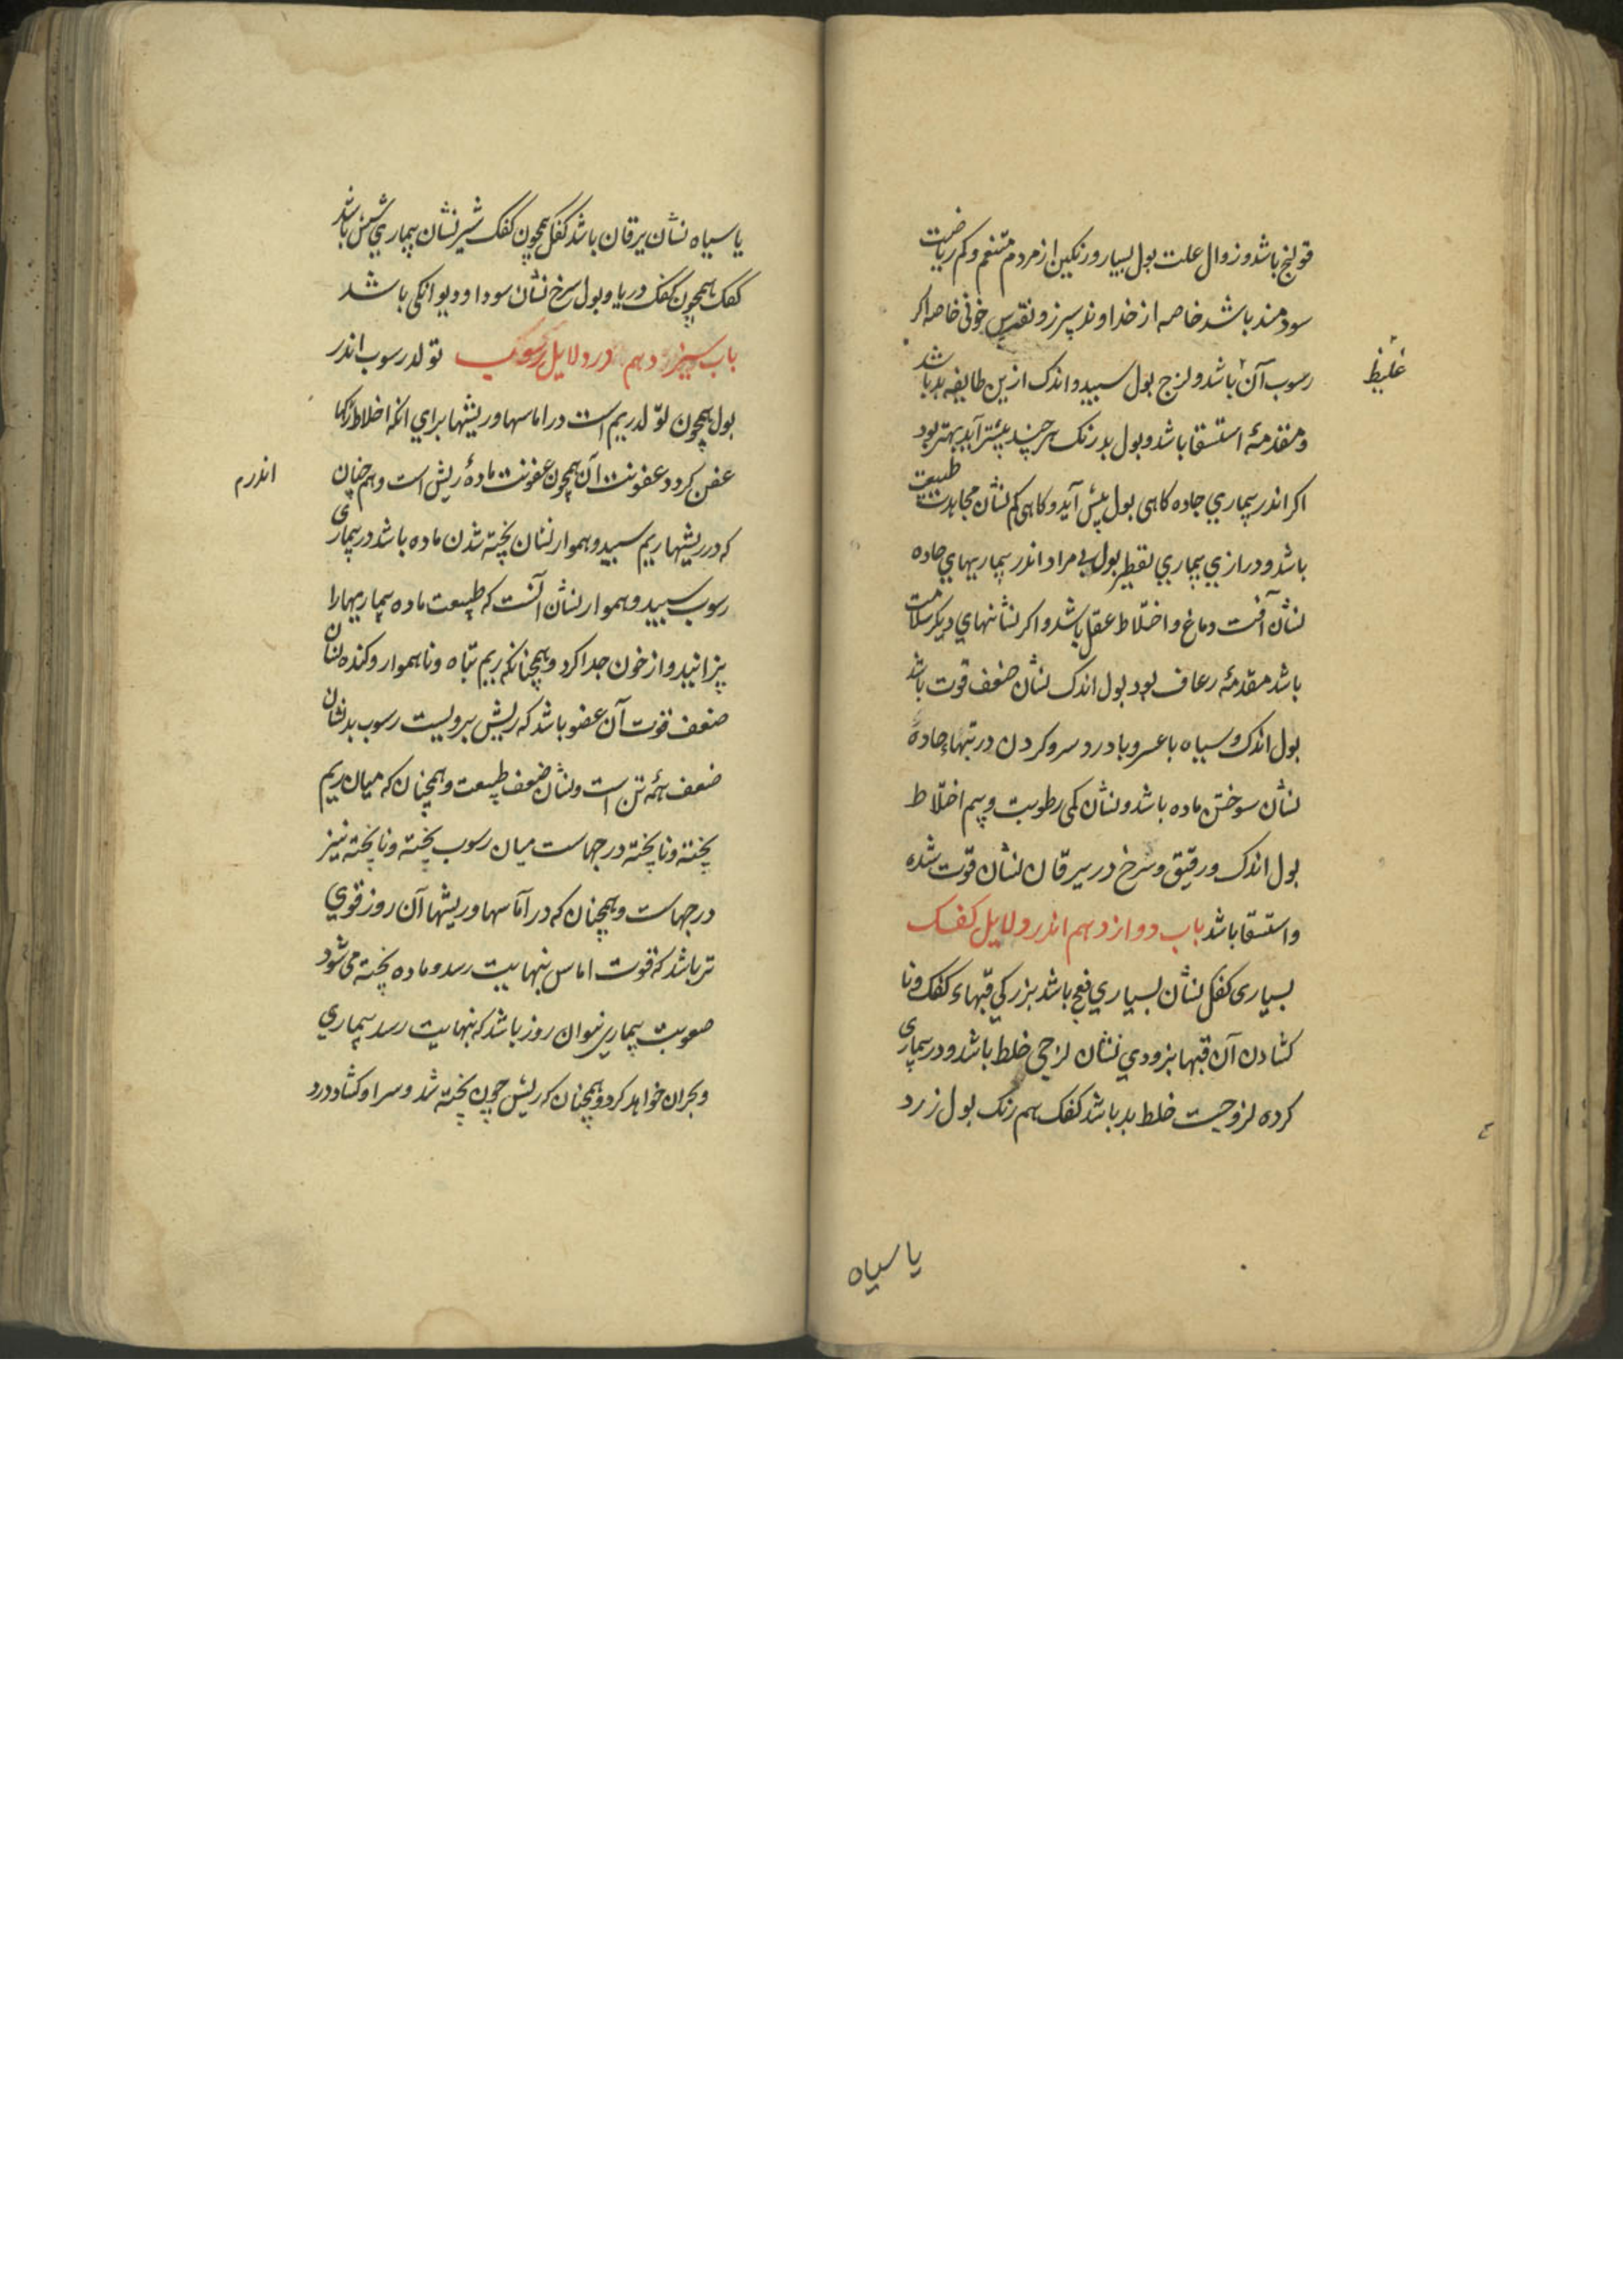 قولنج باشد و زوال علت بول بسیار و رنکین از مردم متنعم و کم ریاضت
سودمند باشد خاصه از خداوند سپرز و نقرس خونی خاصه اکر
رسوب آن باشد و لزج بول سپید و اندک ازین طایفه بد باشد
غلیظ
و مقدمهٔ استسقا باشد و بول بد رنک هر چند بیشتر آید بهتر بود
اکر اندر بیماری حاده کاهی بول بیش آید و کاهی کم نشان مجاهدت طبیعت
باشد و درازی بیماری تقطیر بول بی مراد اندر بیماریهای حاده
نشان آفت دماغ و اختلاط عقل باشد و اکر نشانهای دیکر سلامت
باشد مقدمهٔ رعاف بود بول اندک نشان ضعف قوت باشد
بول اندک و سیاه با عسر و با درد سر و کردن در تبهاء حاده
نشان سوختن ماده باشد و نشان کمی رطوبت و بیم اختلاط
بول اندک و رقیق و سرخ در یرقان نشان قوت شده
و استسقا باشد باب دوازدهم اندر دلایل کفک
بسیاری کفک نشان بسیاری باشد بزرکی قبهاء کفک و نا
کشادن آن قبها بزودی نشان لزجی خلط باشد و در بیماری
کرده لزوجت خلط بد باشد کفک هم رنک بول زرد
یا سیاه
یا سیاه نشان یرقان باشد کفک همچون کفک شیر نشان بیماری شش باشد
کفک همچون کفک دریا و بول سرخ نشان سودا و دیوانکی باشد
باب سیزدهم در دلایل رسوب تولد رسوب اندر
بول همچون تولد ریم است در اماسها و ریشها برای انکه اخلاط رکها
عفن کردد عفونت آن همچون عفونت مادهٔ ریش است و هم چنان
اندرم
که در ریشها ریم سپید و هموار نشان پخته شدن ماده باشد در بیماری
رسوب سپید و هموار نشان آنست که طبیعت ماده بیماریها را
پزانید و از خون جدا کرد و همچنانکه ریم تباه و ناهموار و کنده نشان
ضعف قوت آن عضو باشد که ریش برویست رسوب بد نشان
ضعف همه تن است و نشان ضعف طبیعت و همچنان که میان ریم
پخته و نا پخته درجهاست میان رسوب پخته و نا پخته نیز
درجهاست و همچنان که در آماسها و ریشها آن روز قوی
تر باشد که قوت اماس بنهایت رسد و ماده پخته می شود
صعوبت بیماری آن روز باشد که بنهایت رسد بیماری
و بحران خواهد کرد و همچنان که ریش چون پخته شد و سر او کشاد درد